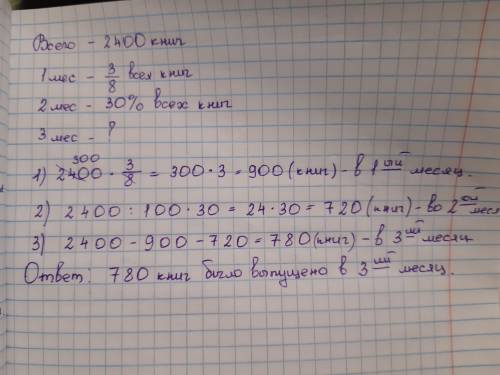 Всего - 2400 книг
1 мес - 3/8 всех книг
2 мес - 30% всех книг
3 мес - ?
1) 2400 · 3/8 = 300 · 3 = 900 (книг) - в 1 ый месяц.
300
2) 2400 : 100 · 30 = 24 · 30 = 720 (книг) - во 2 ой месяц
3) 2400 - 900 - 720 = 780 (книг) - в 3 ий месяц
Ответ: 780 книг было выпущено в 3 ий месяц.